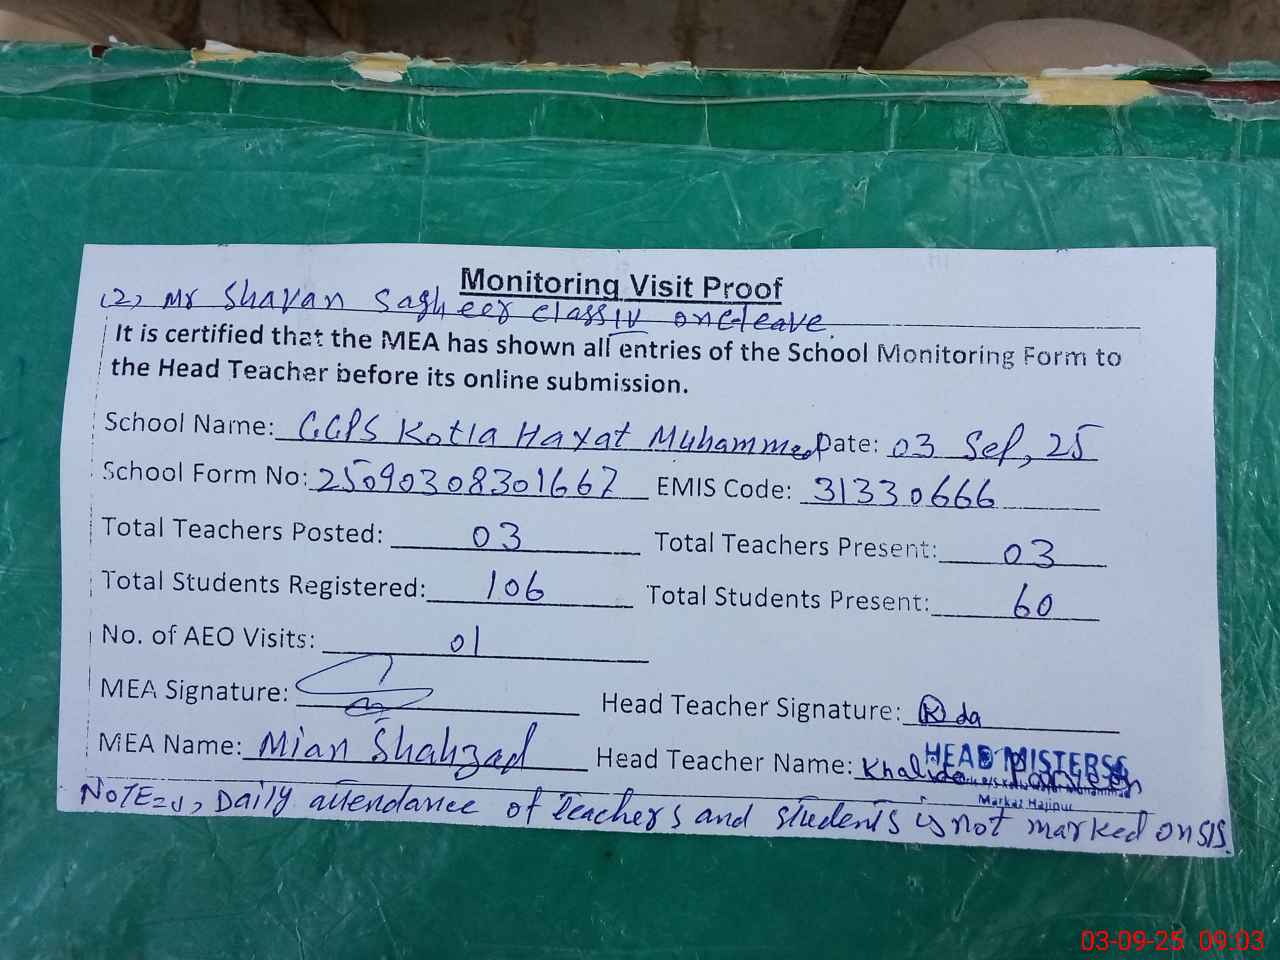 Monitoring Visit Proof
(2) Mr Shavan Sagheer class IV one-leave.
It is certified that the MEA has shown all entries of the School Monitoring Form to
the Head Teacher before its online submission.
School Name: GGPS Kotla Hayat Muhammed Date: 03 Sep, 25
School Form No: 25090308301667 EMIS Code: 31330666
Total Teachers Posted: 03 Total Teachers Present: 03
Total Students Registered: 106 Total Students Present: 60
No. of AEO Visits: 01
MEA Signature:
Head Teacher Signature:
MEA Name: Mian Shahzad Head Teacher Name: Khalida Parveen
HEAD MISTERSS
Markaz Hajipur
NOTE= (1) Daily attendance of teachers and students is not marked on SIS.
03-09-25 09:03